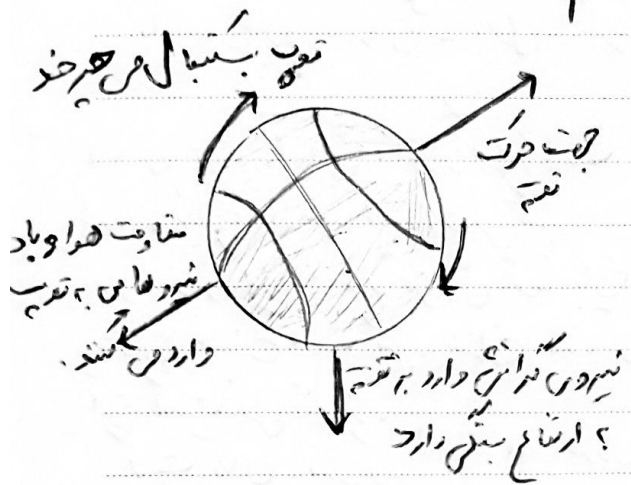 توپ بسکتبال می چرخد
جهت حرکت
توپ
مقاومت هوا و باد
نیروهایی به توپ
وارد می کنند.
نیروی گرانش وارد به توپ
به ارتفاع بستگی دارد